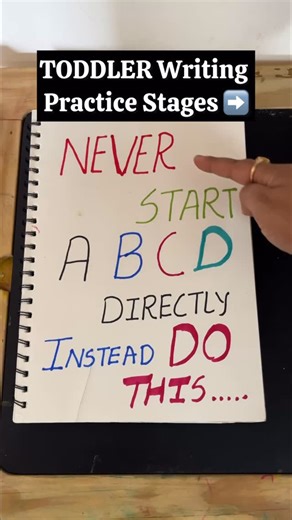 TODDLER Writing
Practice Stages ➡️
NEVER
START
A B C D
DIRECTLY
INSTEAD DO
THIS.....